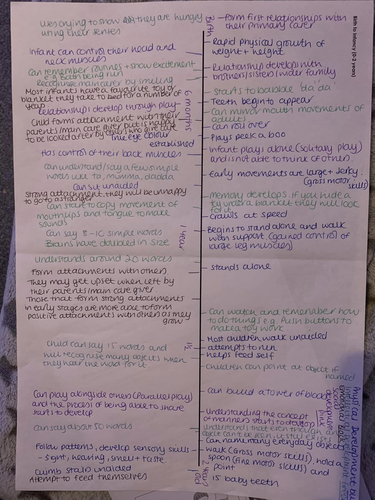 Birth to Infancy (0-2 years)
Birth
using crying to show that they are hungry
using their senses
Infant can control their head and
neck muscles
can remember routines + show excitement
e.g. Bath being run
Recognise main carer by smelling
Most infants have a favourite toy or
blanket they take to bed for a number of
Relationships develop through play
Child forms attachment with their
parents/main care giver but is happy
to be looked after by others who give care
true eye colour
established
6 months
Has control of their back muscles
can understand/say a few simple
words like to, mumma, dadda
can sit unaided
strong attachment, they will be unhappy
to go to a stranger
Can start to copy movement of
mouth lips and tongue to make
sounds
Can say 8-10 simple words
Brains have doubled in size
1 year
understands around 20 words
Form attachments with others
They may get upset when left by
their parents/main care giver
Those that form strong attachments
in early stages are more able to form
positive attachments with others as they
grow
Child can say 15 words and
will recognise many objects when
they hear the word for it
Can play alongside others (Parallel play)
and the process of being able to share
starts to develop
can say about 50 words
Follow patterns, develop sensory skills
- sight, hearing, smell + taste
Climb stairs unaided
Attempt to feed themselves
- form first relationships with
their primary carer
Rapid physical growth of
weight + height
Relationships develop with
brothers/sisters/wider family
starts to babble 'ba da'
Teeth begin to appear
Can mirror mouth movements of
adults
Can roll over
Plays peek a boo
Infant plays alone (solitary play)
and is not able to think of others
Early movements are large + jerky
(gross motor
skills)
Memory develops if you hide a
toy with a blanket they will look
for it
Crawls at speed
Begins to stand alone and walk
with support (gained control of
large leg muscles)
stands alone
Can watch and remember how
to do things e.g. Push buttons to
make a toy work
Most children walk unaided
attempts to run
helps feed self
Children can point at object if
named
Can build a tower of blocks
Understanding the concept
of manners starts to develop
understands that even though
object can't be seen, it still exists
Can name many everyday objects
walk (Gross motor skills), hold a
spoon (fine motor skills) and
point
2 years
15 baby teeth